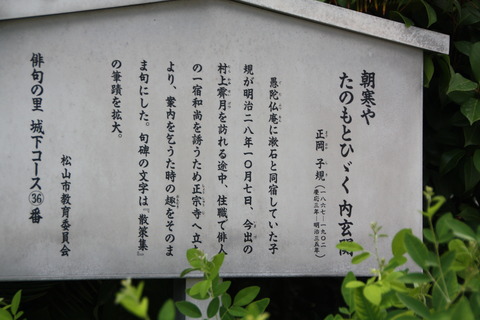 朝寒や
たのもとひゞく内玄関
正岡 子規(一八六七―一九〇二)
(慶応三年―明治三五年)
愚陀仏庵に漱石と同宿していた子
規が明治二八年一〇月七日、今出の
村上霽月を訪れる途中、住職で俳人
の一宿和尚を誘うため正宗寺へ立
より、案内を乞うた時の趣をそのま
ま句にした。句碑の文字は『散策集』
の筆蹟を拡大。
松山市教育委員会
俳句の里 城下コース㊱番